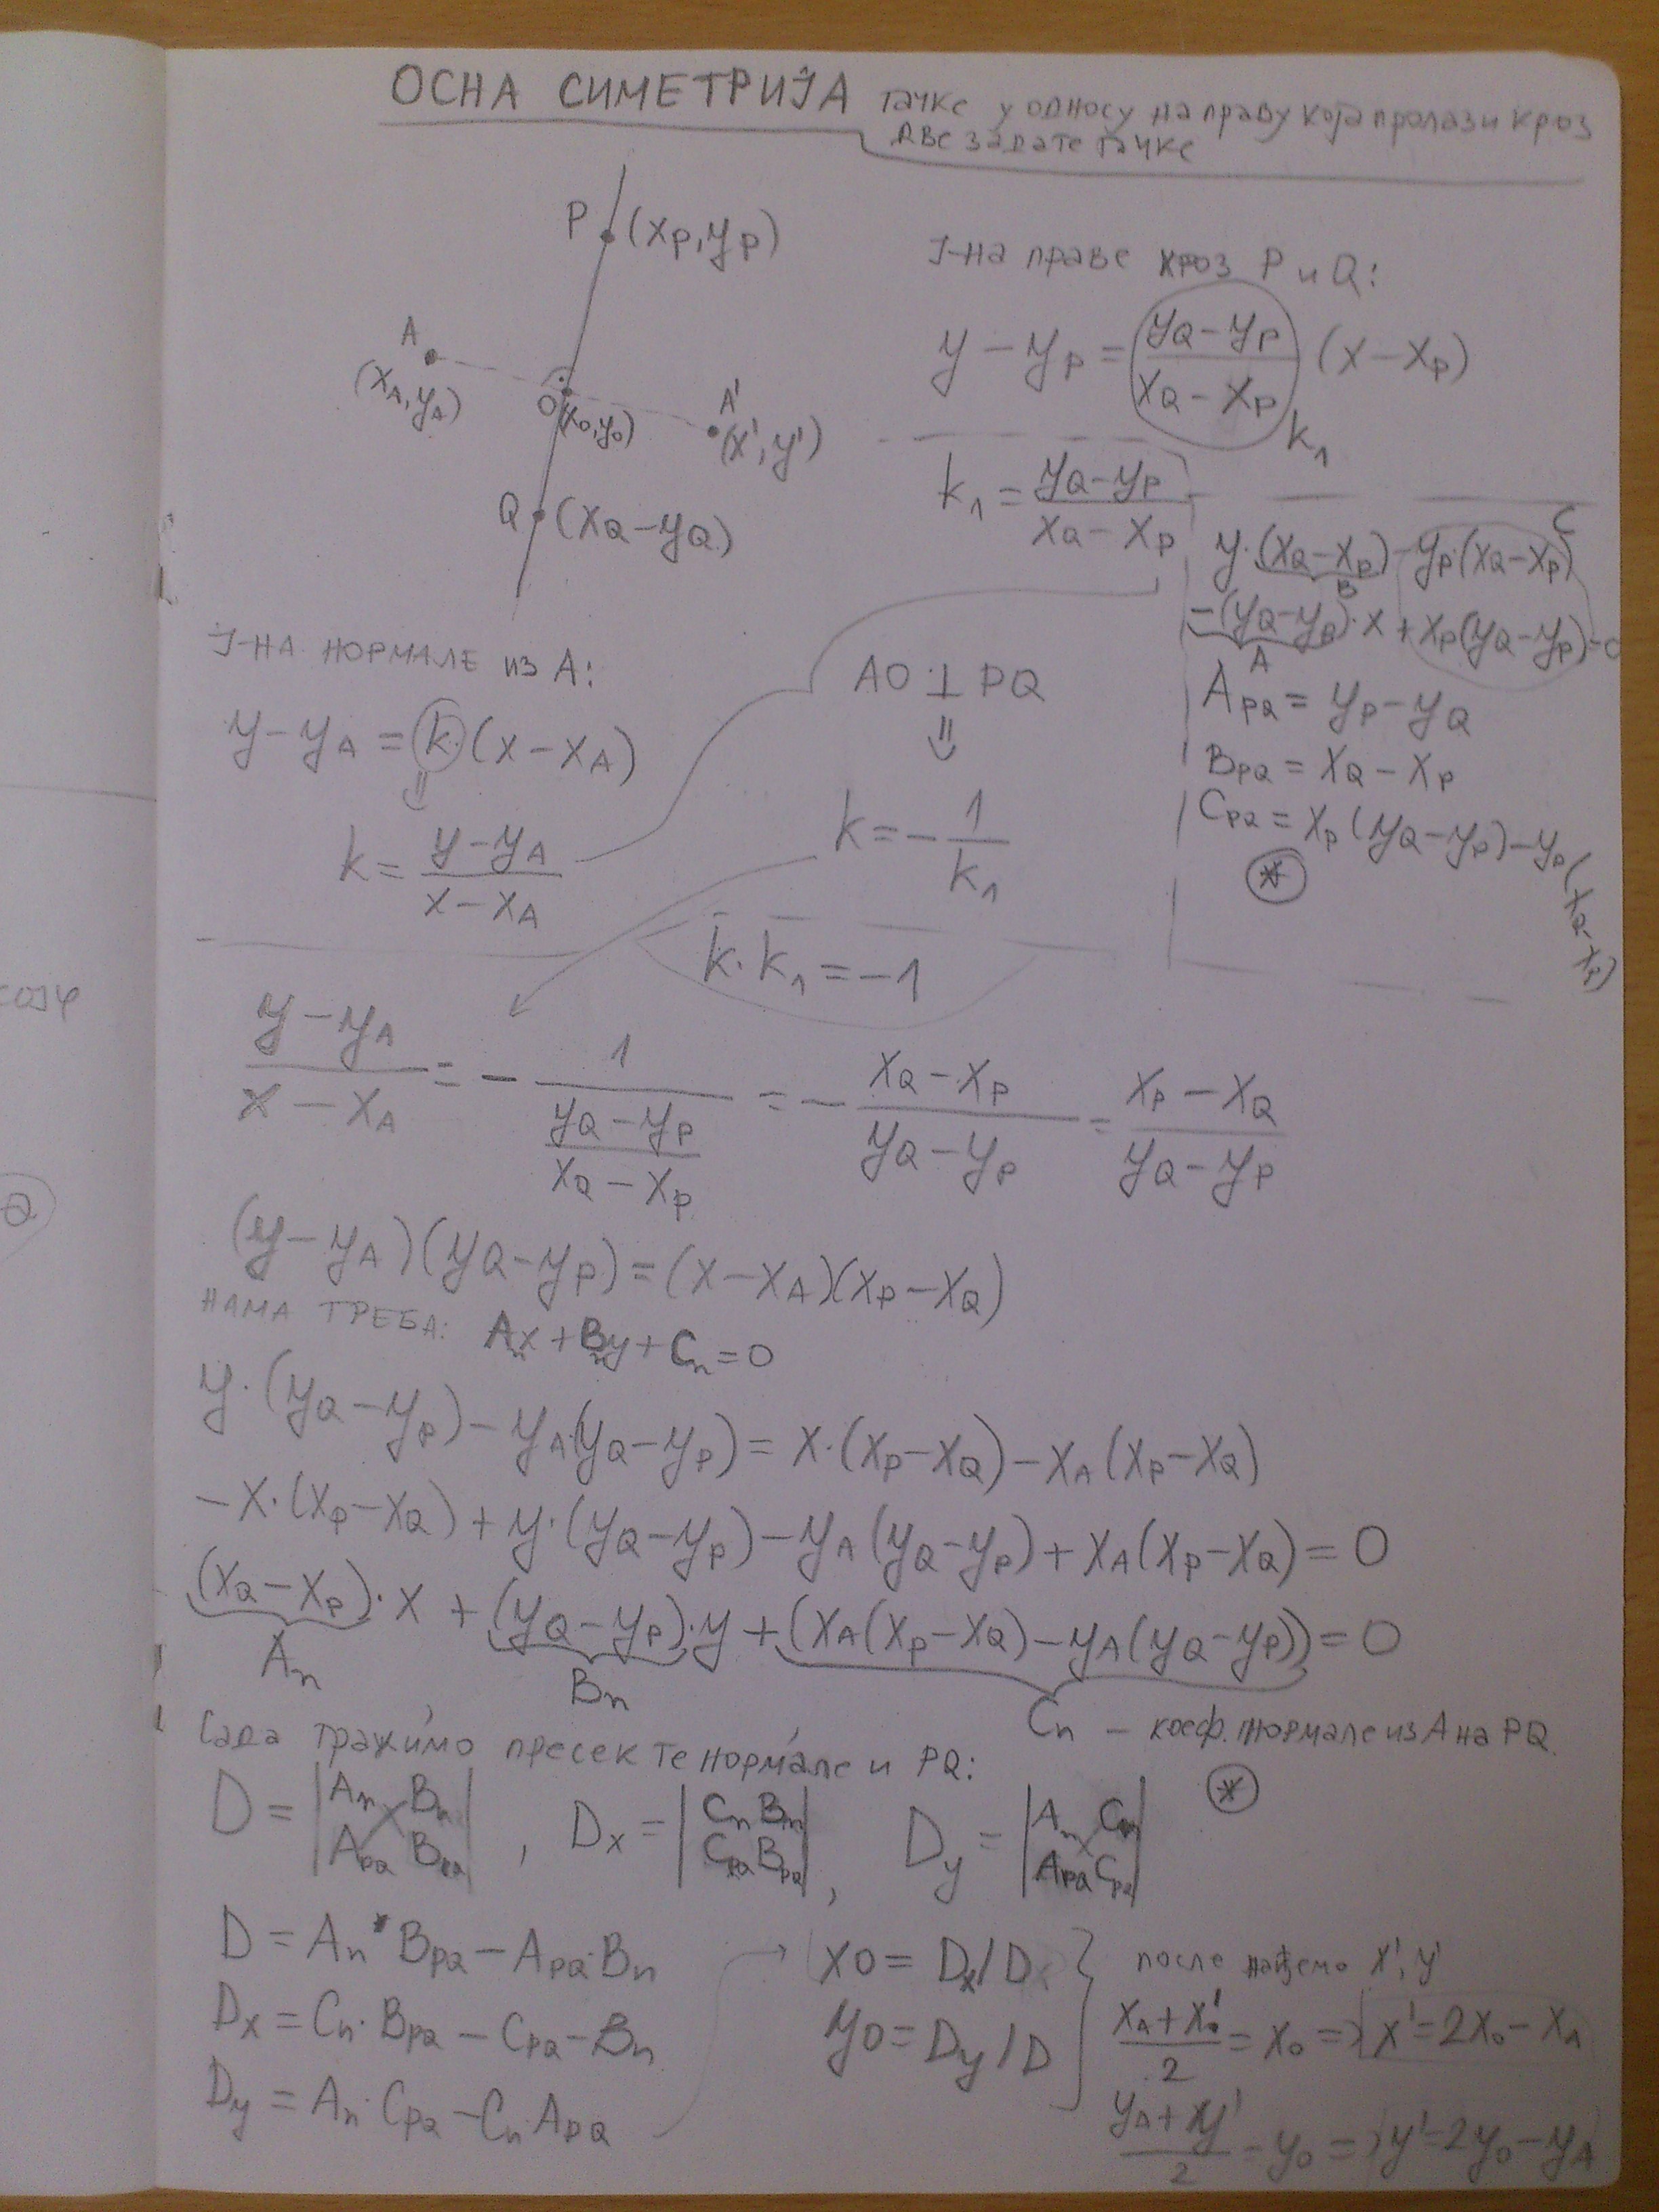 ОСНА СИМЕТРИЈА тачке у односу на праву која пролази кроз
две задате тачке
P (xP, yP)
A
(xA, yA)
O (x0, y0)
A'
(x', y')
Q (xQ – yQ)
Ј-на праве кроз P и Q:
y – yP = (yQ – yP)/(xQ – xP) (x – xP)
k1
k1 = (yQ – yP)/(xQ – xP)
C
y·(xQ – xP) – yP·(xQ – xP)
B
–(yQ – yP)·x + xP(yQ – yP) = 0
A
APQ = yP – yQ
BPQ = xQ – xP
CPQ = xP(yQ – yP) – yP(xQ – xP)
*
Ј-НА НОРМАЛЕ ИЗ A:
y – yA = k·(x – xA)
⇓
k = (y – yA)/(x – xA)
AO ⊥ PQ
⇓
k = – 1/k1
k·k1 = –1
(y – yA)/(x – xA) = – 1/((yQ – yP)/(xQ – xP)) = – (xQ – xP)/(yQ – yP) = (xP – xQ)/(yQ – yP)
(y – yA)(yQ – yP) = (x – xA)(xP – xQ)
НАМА ТРЕБА: Anx + Bny + Cn = 0
y·(yQ – yP) – yA·(yQ – yP) = x·(xP – xQ) – xA(xP – xQ)
–x·(xP – xQ) + y·(yQ – yP) – yA(yQ – yP) + xA(xP – xQ) = 0
(xQ – xP)·x + (yQ – yP)·y + (xA(xP – xQ) – yA(yQ – yP)) = 0
An Bn Cn – коеф. нормале из A на PQ
Сада тражимо пресек те нормале и PQ:
*
D = |An Bn|, Dx = |Cn Bn|, Dy = |An Cn|
|APQ BPQ| |CPQ BPQ| |APQ CPQ|
D = An * BPQ – APQ·Bn
Dx = Cn·BPQ – CPQ – Bn
Dy = An·CPQ – Cn·APQ
x0 = Dx/D
y0 = Dy/D
после нађемо x', y'
(xA + x')/2 = x0 => x' = 2x0 – xA
(yA + y')/2 = y0 => y' = 2y0 – yA